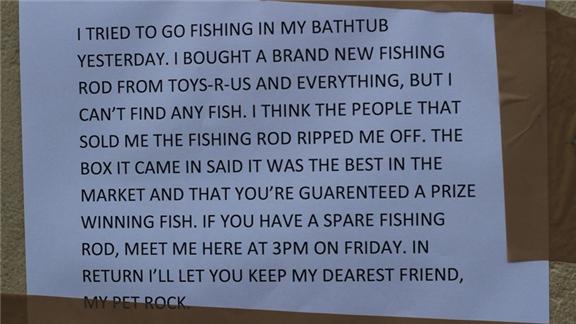 I TRIED TO GO FISHING IN MY BATHTUB
YESTERDAY. I BOUGHT A BRAND NEW FISHING
ROD FROM TOYS-R-US AND EVERYTHING, BUT I
CAN'T FIND ANY FISH. I THINK THE PEOPLE THAT
SOLD ME THE FISHING ROD RIPPED ME OFF. THE
BOX IT CAME IN SAID IT WAS THE BEST IN THE
MARKET AND THAT YOU'RE GUARENTEED A PRIZE
WINNING FISH. IF YOU HAVE A SPARE FISHING
ROD, MEET ME HERE AT 3PM ON FRIDAY. IN
RETURN I'LL LET YOU KEEP MY DEAREST FRIEND,
MY PET ROCK.